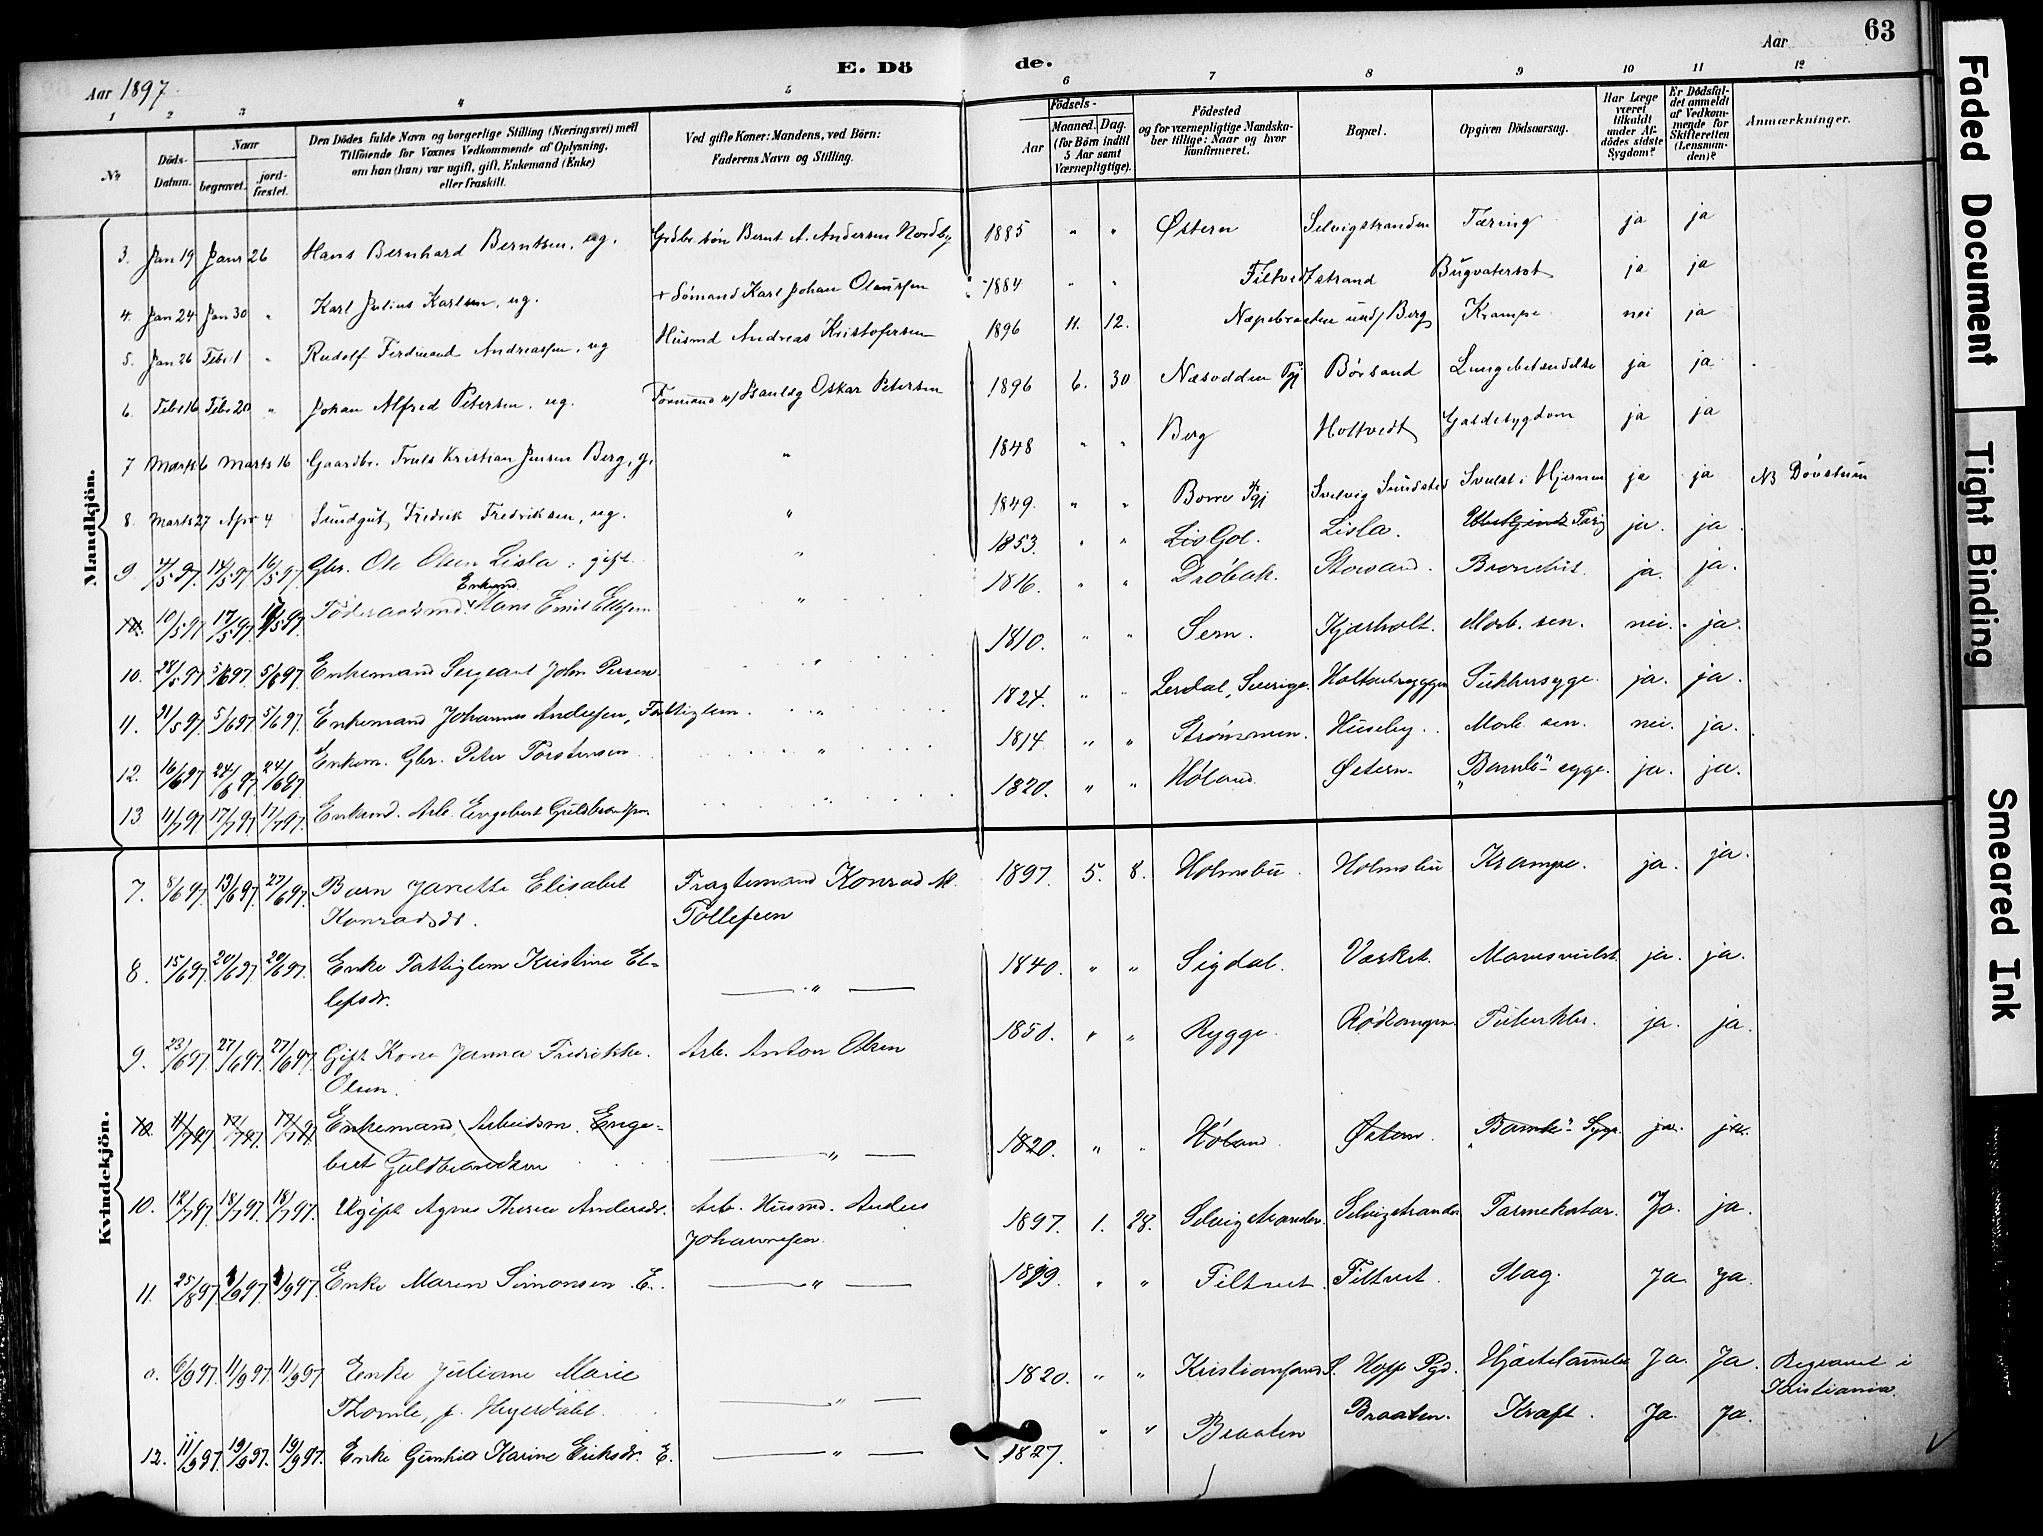 63
Aar 1897.
E. Dö de.
Aar
1 2 3 4 5 6 7 8 9 10 11 12
No
Döds-Datum.
Naar
begravet.
jord-fæstet.
Den Dödes fulde Navn og borgerlige Stilling (Næringsvei) med Tilföiende for Voxnes Vedkommende af Oplysning, om han (hun) var ugift, gift, Enkemand (Enke) eller fraskilt.
Ved gifte Koner: Mandens, ved Börn: Faderens Navn og Stilling.
Födsels-
Aar
Maaned. Dag.
(for Börn indtil 5 Aar samt Værnepligtige).
Födested og for værnepligtige Mandskaber tillige: Naar og hvor konfirmeret.
Bopæl.
Opgiven Dödsaarsag.
Har Læge været tilkaldt under Afdödes sidste Sygdom?
Er Dödsfaldet anmeldt af Vedkommende for Skifteretten (Lensmanden)?
Anmærkninger.
Mandkjön.
3. Jan 19 Janr 26 Hans Bernhard Berntsen, ug. Grdbr. søn Bernt A. Andersen Nordby 1885 " " Østern Selvigstranden Tæring ja ja
4. Jan 24 Jan 30 " Karl Julius Karlsen, ug. + Sømand Karl Johan Olaussen 1884 " " Filtvedtstrand Bugvatersot ja ja
5. Jan 26 Febr 1 " Rudolf Ferdinand Andreassen, ug Husmd Andreas Kristofersen 1896 11. 12. Næpebraaten und/ Berg Krampe nei ja
6. Febr 16 Febr 20 " Johan Alfred Petersen, ug. Formand v/ Oskar Petersen 1896 6. 30 Næsodden Pgj Børsand Lungebetændelse ja ja
7 Marts 6 Marts 16 Gaardbr. Truls Kristian Jensen Berg, g. " 1848 " " Berg Holtvedt Galdesygdom ja ja
8. Marts 27 Apr 4 Sundgut, Fredrik Fredriksen, ug. " 1849. " " Borre Pgj Svelvig Sundsted Svulst i Hjernen ja ja NB Døvstum
9 7/5 97. 14/5 97 16/5 97. Gbr. Ole Olsen Lisla, gift " 1853. " " Lisla. ja. ja.
10. 10/5 97 17/5 97 Föderaadsmd. Enkemd. Hans Emil Ellefsen " 1816. " " Drøbak. Storsand. Bronchit. ja. ja.
10. 28/5 97 5/6 97. 5/6 97. Enkemand Sergeant John Persen " 1810. " " Sem. Kjærholt. Marb. sen. nei. ja.
11. 31/5 97 5/6 97 5/6 97. Enkemand Johannes Andersen, Fattiglem. " 1824. " " Lerdal, Sverige. Sukkersyge. ja. ja.
12. 16/6 97 24/6 97 24/6 97. Enkem. Gbr. Peter Torstensen " 1814. " " Strømmen. Huseby. Marb. sen. nei. ja.
13 11/7 97 17/7 97 17/7 97. Enkemd. Arb. Engebret Guldbrandsen. " 1820. " " Høland. Østern. "Bamle"-syge. ja. ja.
Kvindekjön.
7. 8/6 97. 13/6 97. 27/6 97. Barn Janette Elisabet Konradsdr. Fragtemand Konrad M. Tollefsen 1897. 5. 8. Holmsbu Holmsbu Krampe. ja. ja.
8. 15/6 97. 20/6 97 20/6 97. Enke Fattiglem Kristine Ellefsdr. " 1840. " " Sigdal. Værket. Mavesvulst. ja. ja.
9. 23/6 97. 27/6 97. 27/6 97. Gift Kone Janna Fredrikke Olsen. Arb. Anton Olsen 1850. " " Rygge. Rødtangen. Tuberkler. ja. ja.
10. 11/7 97 17/7 97. 17/7 97 Enkemand, Arbeidsm. Engebret Guldbrandsen " 1820. " " Høland. Østern. "Bamle"-Syge. ja. ja.
10. 12/7 97 18/7 97. 18/7 97. Ugift Agnes Therese Andersdr. Arb. Husmd. Anders Johannesen. 1897. 1. 28. Selvigstranden. Selvigstranden Tarmekatar. Ja. ja.
11. 25/8 97 /9 97. /9 97. Enke Maren Simonsen. E. " 1819. " " Filtvet. Filtvet. Slag. Ja. ja.
0. 6/9 97. 11/9 97. 11/9 97 Enke Juliane Marie Thomle, f. Heyerdahl. " 1820. " " Kristianssand S. Hoff Pgd. Hjertelammelse Ja. Ja. Begravet i Kristiania.
12. 11/9 97. 19/9 97. 19/9 97. Enke Gunhild Karine Eriksdr. E. " 1827. " " Braaten Braaten. Kræft. Ja. Ja.
Faded Document
Tight Binding
Smeared Ink